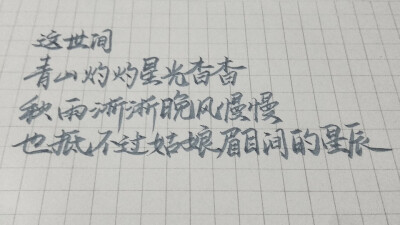 这世间
青山灼灼星光杳杳
秋雨淅淅晚风慢慢
也抵不过姑娘眉目间的星辰